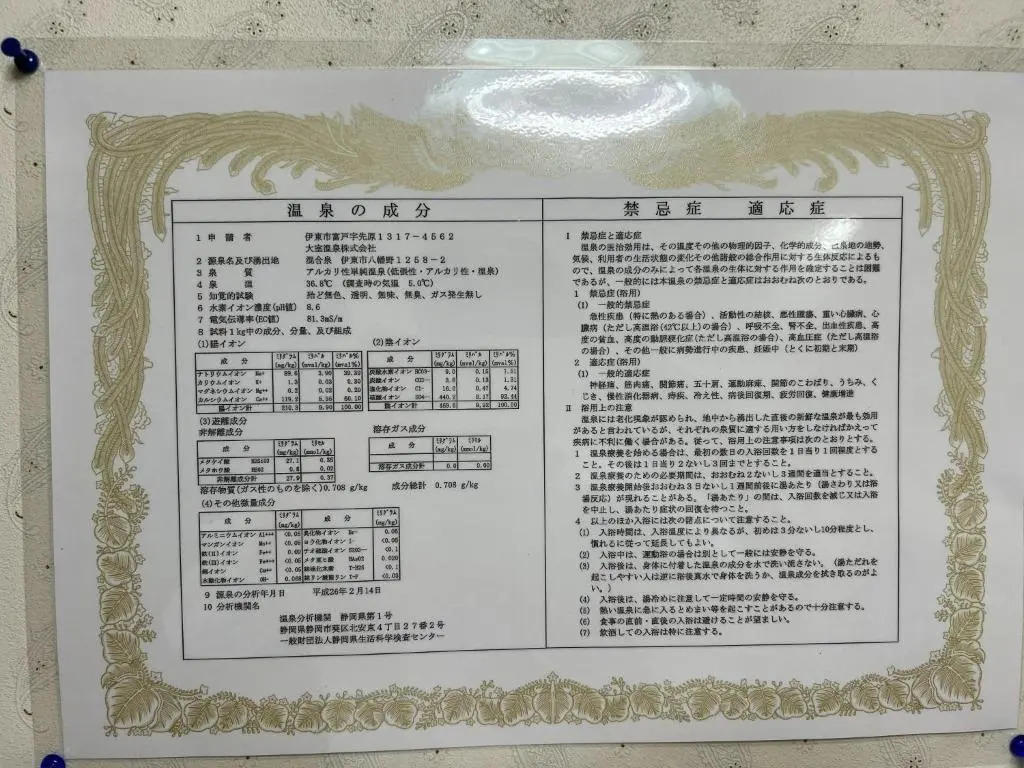 温泉の成分
1 申請者 伊東市富戸字先原1317-4562
大室温泉株式会社
2 源泉名及び湧出地 混合泉 伊東市八幡野1258-2
3 泉質 アルカリ性単純温泉(低張性・アルカリ性・温泉)
4 泉温 36.8℃ (調査時の気温 5.0℃)
5 知覚的試験 殆ど無色、透明、無味、無臭、ガス発生無し
6 水素イオン濃度(pH値) 8.6
7 電気伝導率(EC値) 81.3mS/m
8 試料1kg中の成分、分量、及び組成
(1)陽イオン
成分 ミリグラム(mg/kg) ミリバル(mval/kg) ミリバル%(mval%)
ナトリウムイオン Na+ 89.6 3.90 39.39
カリウムイオン K+ 1.3 0.03 0.30
マグネシウムイオン Mg++ 0.2 0.02 0.20
カルシウムイオン Ca++ 119.2 5.95 60.10
陽イオン計 210.3 9.90 100.00
(2)陰イオン
成分 ミリグラム(mg/kg) ミリバル(mval/kg) ミリバル%(mval%)
炭酸水素イオン HCO3- 9.0 0.15 1.51
炭酸イオン CO3-- 0.13 1.31
塩化物イオン Cl- 0.47 4.74
硫酸イオン SO4-- 440.2 9.17 92.44
陰イオン計 9.92 100.00
(3)遊離成分
非解離成分
成分 ミリグラム(mg/kg) ミリモル(mmol/kg)
メタケイ酸 H2SiO3 27.1 0.35
メタホウ酸 HBO2 0.8 0.02
非解離成分計 27.9 0.37
溶存ガス成分
成分 ミリグラム(mg/kg) ミリモル(mmol/kg)
溶存ガス成分計 0.0 0.00
溶存物質(ガス性のものを除く)0.708 g/kg 成分総計 0.708 g/kg
(4)その他微量成分
成分 ミリグラム(mg/kg) 成分 ミリグラム(mg/kg)
アルミニウムイオン Al+++ <0.05 臭化物イオン Br- 0.05
マンガンイオン Mn++ <0.05 ヨウ化物イオン I- <0.05
鉄(II)イオン Fe++ チオ硫酸イオン S2O3-- <0.1
鉄(III)イオン メタ亜ヒ酸 HAsO2 0.020
銅イオン Cu++ <0.05 総硫化水素 T-H2S <0.1
水酸化物イオン OH- 0.068 総リン酸態リン T-P <0.03
9 源泉の分析年月日 平成26年2月14日
10 分析機関名
温泉分析機関 静岡県第1号
静岡県静岡市葵区北安東4丁目27番2号
一般財団法人静岡県生活科学検査センター
禁忌症 適応症
I 禁忌症と適応症
温泉の医治効用は、その温度その他の物理的因子、化学的成分、温泉地の地勢、
気候、利用者の生活状態の変化その他諸般の総合作用に対する生体反応によるも
ので、温泉の成分のみによって各温泉の生体に対する作用を確定することは困難
であるが、一般的には本温泉の禁忌症と適応症はおおむね次のとおりである。
1 禁忌症(浴用)
(1) 一般的禁忌症
急性疾患(特に熱のある場合)、活動性の結核、悪性腫瘍、重い心臓病、心
臓病(ただし高温浴(42℃以上)の場合)、呼吸不全、腎不全、出血性疾患、高度
の貧血、高度の動脈硬化症(ただし高温浴の場合)、高血圧症(ただし高温浴
の場合)、その他一般に病勢進行中の疾患、妊娠中(とくに初期と末期)
2 適応症(浴用)
(1) 一般的適応症
神経痛、筋肉痛、関節痛、五十肩、運動麻痺、関節のこわばり、うちみ、く
じき、慢性消化器病、痔疾、冷え性、病後回復期、疲労回復、健康増進
II 浴用上の注意
温泉には老化現象が認められ、地中から湧出した直後の新鮮な温泉が最も効用
があると言われているが、それぞれの泉質に適する用い方をしなければかえって
疾病に不利に働く場合がある。従って、浴用上の注意事項は次のとおりとする。
1 温泉療養を始める場合は、最初の数日の入浴回数を1日当り1回程度とする
こと。その後は1日当り2ないし3回までとすること。
2 温泉療養のための必要期間は、おおむね2ないし3週間を適当とすること。
3 温泉療養開始後おおむね3日ないし1週間前後に湯あたり(湯さわり又は浴
場反応)が現れることがある。「湯あたり」の間は、入浴回数を減じ又は入浴
を中止し、湯あたり症状の回復を待つこと。
4 以上のほか入浴には次の諸点について注意すること。
(1) 入浴時間は、入浴温度により異なるが、初めは3分ないし10分程度とし、
慣れるに従って延長してもよい。
(2) 入浴中は、運動浴の場合は別として一般には安静を守る。
(3) 入浴後は、身体に付着した温泉の成分を水で洗い流さない。(湯ただれを
起こしやすい人は逆に浴後真水で身体を洗うか、温泉成分を拭き取るのがよ
い。)
(4) 入浴後は、湯冷めに注意して一定時間の安静を守る。
(5) 熱い温泉に急に入るとめまい等を起こすことがあるので十分注意する。
(6) 食事の直前・直後の入浴は避けることが望ましい。
(7) 飲酒しての入浴は特に注意する。